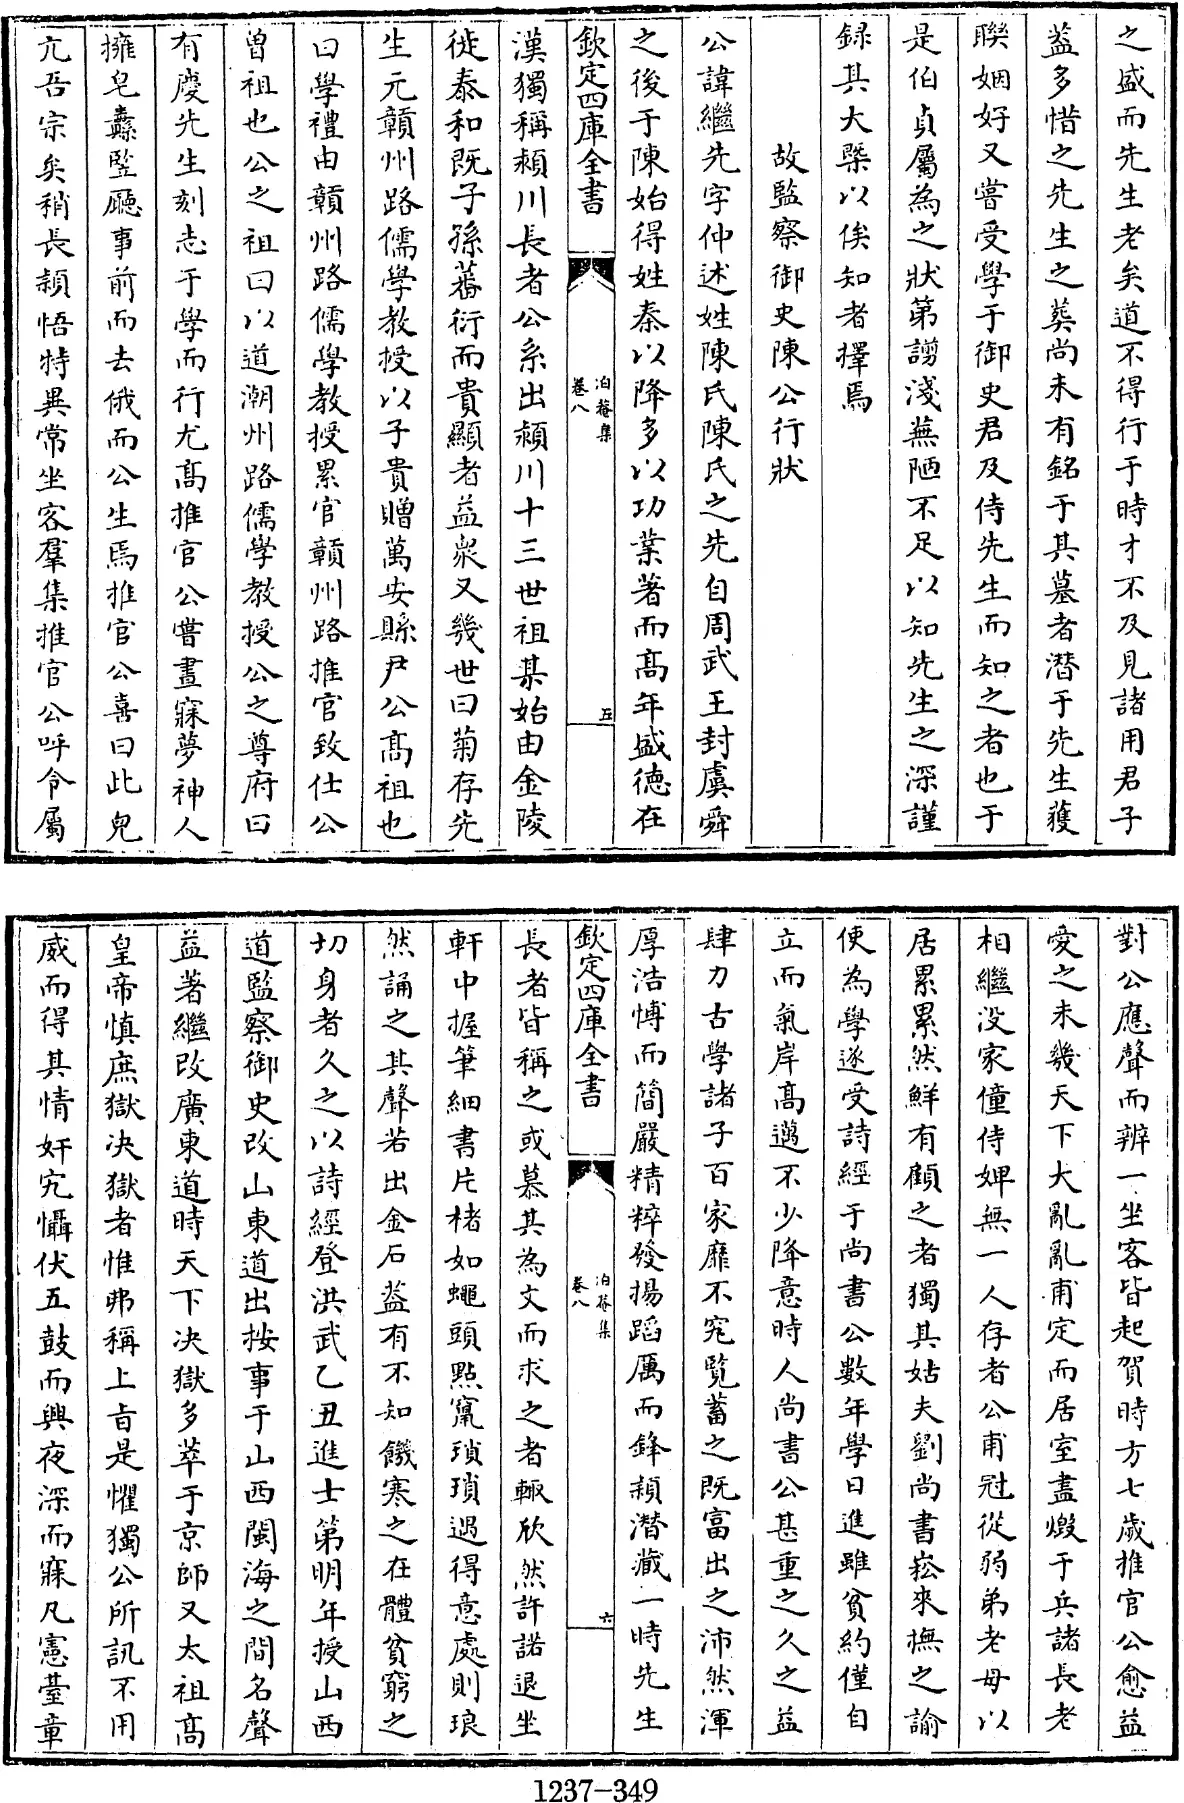 之盛而先生老矣道不得行于時才不及見諸用君子
葢多惜之先生之葬尚未有銘于其墓者潛于先生獲
聨姻好又嘗受學于御史君及侍先生而知之者也于
是伯貞屬為之狀第謭淺蕪陋不足以知先生之深謹
録其大槩以俟知者擇焉
故監察御史陳公行狀
公諱繼先字仲述姓陳氏陳氏之先自周武王封虞舜
之後于陳始得姓秦以降多以功業著而髙年盛徳在
欽定四庫全書
泊菴集
卷八
五
漢獨稱潁川長者公系出潁川十三世祖某始由金陵
徙泰和既子孫蕃衍而貴顯者益衆又幾世曰菊存先
生元贑州路儒學教授以子貴贈萬安縣尹公髙祖也
曰學禮由贑州路儒學教授累官贑州路推官致仕公
曽祖也公之祖曰以道潮州路儒學教授公之尊府曰
有慶先生刻志于學而行尤髙推官公嘗晝寐夢神人
擁皂纛豎廳事前而去俄而公生焉推官公喜曰此兒
亢吾宗矣稍長頴悟特異常坐客羣集推官公呼令屬
對公應聲而辨一坐客皆起賀時方七歲推官公愈益
愛之未幾天下大亂亂甫定而居室盡燬于兵諸長老
相繼沒家僮侍婢無一人存者公甫冠從弱弟老母以
居累累然鮮有顧之者獨其姑夫劉尚書崧來撫之諭
使為學遂受詩經于尚書公數年學日進雖貧約僅自
立而氣岸髙邁不少降意時人尚書公甚重之久之益
肆力古學諸子百家靡不究覧蓄之既富出之沛然渾
厚浩博而簡嚴精粹發揚蹈厲而鋒頴潛藏一時先生
欽定四庫全書
泊菴集
卷八
六
長者皆稱之或慕其為文而求之者輙欣然許諾退坐
軒中握筆細書片楮如蠅頭點竄瑣瑣遇得意處則琅
然誦之其聲若出金石葢有不知饑寒之在體貧窮之
切身者久之以詩經登洪武乙丑進士第明年授山西
道監察御史改山東道出按事于山西閩海之間名聲
益著繼改廣東道時天下决獄多萃于京師又太祖髙
皇帝慎庶獄决獄者惟弗稱上㫖是懼獨公所訊不用
威而得其情奸宄懾伏五鼓而興夜深而寐凡憲臺章
1237-349